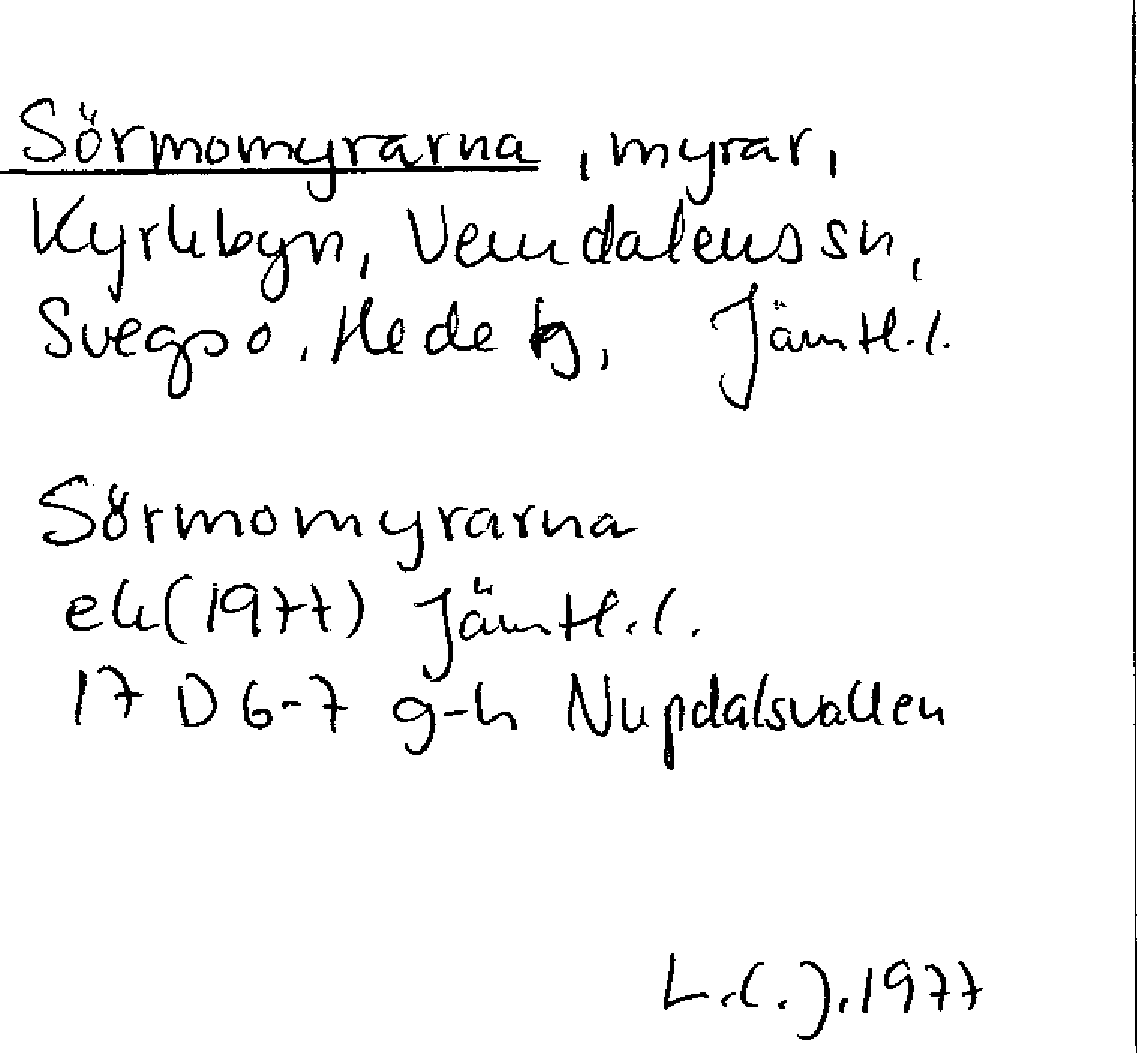 Sörmomyrarna, myrar,
Kyrkbyn, Vemdalens sn,
Svegs po, Hede tg, Jämtl.l.
Sörmomyrarna
ek (1977) Jämtl.l.
17 D 6-7 g-h Nupdalsvallen
L.C.J. 1977